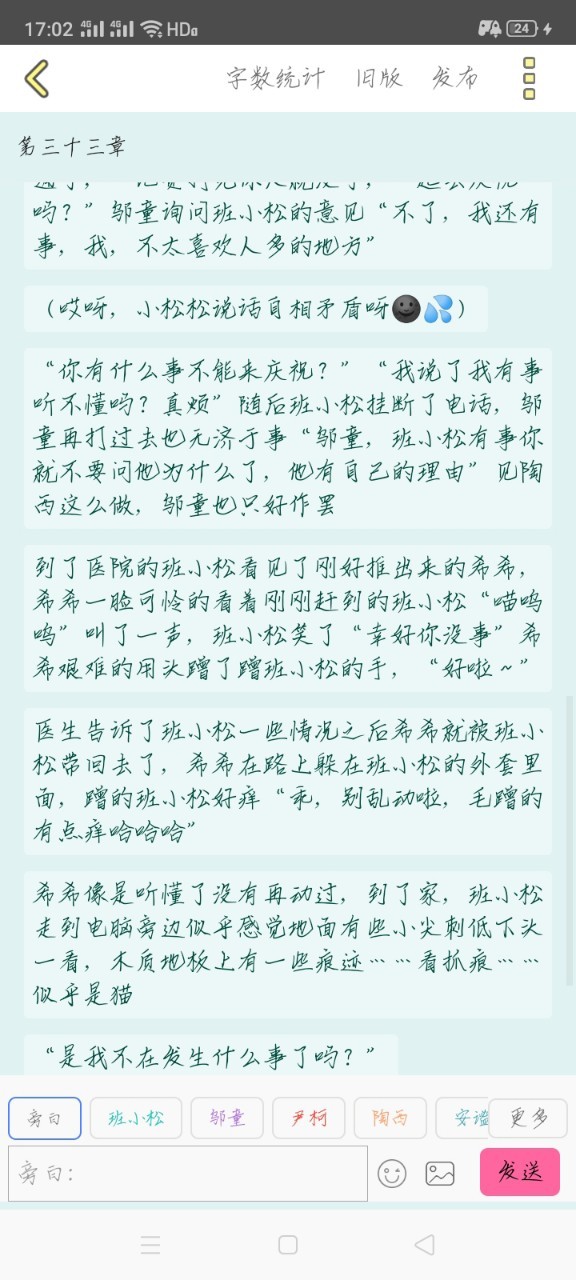 17:02 4G 4G HD 24
字数统计 旧版 发布
第三十三章
吗？”邹童询问班小松的意见“不了，我还有
事，我，不太喜欢人多的地方”
（哎呀，小松松说话自相矛盾呀🌚💦）
“你有什么事不能来庆祝？”“我说了我有事
听不懂吗？真烦”随后班小松挂断了电话，邹
童再打过去也无济于事“邹童，班小松有事你
就不要问他为什么了，他有自己的理由”见陶
西这么做，邹童也只好作罢
到了医院的班小松看见了刚好推出来的希希，
希希一脸可怜的看着刚刚赶到的班小松“喵呜
呜”叫了一声，班小松笑了“幸好你没事”希
希艰难的用头蹭了蹭班小松的手，“好啦～”
医生告诉了班小松一些情况之后希希就被班小
松带回去了，希希在路上躲在班小松的外套里
面，蹭的班小松好痒“乖，别乱动啦，毛蹭的
有点痒哈哈哈”
希希像是听懂了没有再动过，到了家，班小松
走到电脑旁边似乎感觉地面有些小尖刺低下头
一看，木质地板上有一些痕迹……看抓痕……
似乎是猫
“是我不在发生什么事了吗？”
旁白 班小松 邹童 尹柯 陶西 安谧 更多
旁白： 发送